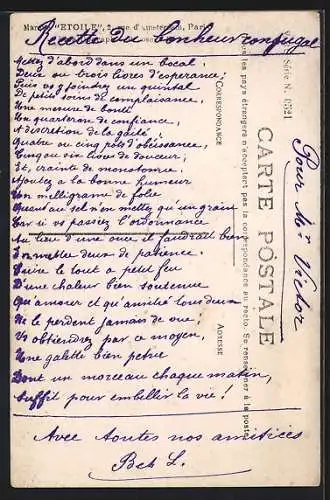 Marque "ETOILE", 2, rue d'Amsterdam, Paris
Recette du bonheur conjugal
Mettez d'abord dans un bocal,
Deux ou trois livres d'espérance;
Puis vous y joindrez un quintal
De petits soins de complaisance,
Une mesure de bonté
Un quarteron de confiance,
A discretion de la gaîté;
Quatre ou cinq pots d'obéissance,
Cinq ou six livres de douceur;
Et, crainte de monotonie,
Ajoutez à la bonne humeur
Un milligramme de folie
Quant au sel n'en mettez qu'un grain
Car si vs passiez l'ordonnance
Au lieu d'une once il faudrait bien
En mettre deux de patience.
Cuire le tout à petit feu
D'une chaleur bien soutenue
Qu'amour et qu'amitié tous deux
Ne le perdent jamais de vue
Vs obtiendrez par ce moyen,
Une galette bien pétrie
Dont un morceau chaque matin,
Suffit pour embellir la vie!
Avec toutes nos amitiés
Bek L.
CORRESPONDANCE
ADRESSE
Tous les pays étrangers n'acceptent pas la correspondance au recto. Se renseigner à la poste
CARTE POSTALE
Série N.
Pour Mr Victor